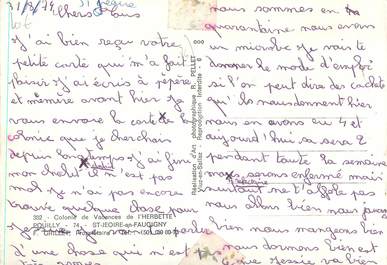 31/3/74
chers tous
J'ai bien reçu votre
petite carte qui m'a fait
plaisir j'ai écris à pépère
et mémère avant hier je
vous envoie la carte de la
colonie que je cherchais
depuis longtemps j'ai fini
mon chalet il n'est pas
mal je n'ai pas encore
trouvé quelque chose pour
d'une chose qui n'est pas
nous sommes en
quarantaine nous avons
un microbe je vais te
donner le mode d'emploi
si l'on peut dire des cachets
qu'ils nous donnent hier
nous en avons eu 4 et
aujourd'hui sa sera 2
pendant toute la semaine
nous serons enfermé mais
surtout ne t'affole pas
nous allons bien nous
nous mangeons bien
nous dormons bien et
Réalisation d'Art photographique R. PELLET
Vic-en-Sallaz - Reproduction interdite - 6
302 - Colonie de Vacances de l'HERBETTE
POUILLY - 74 - ST-JEOIRE-en-FAUCIGNY